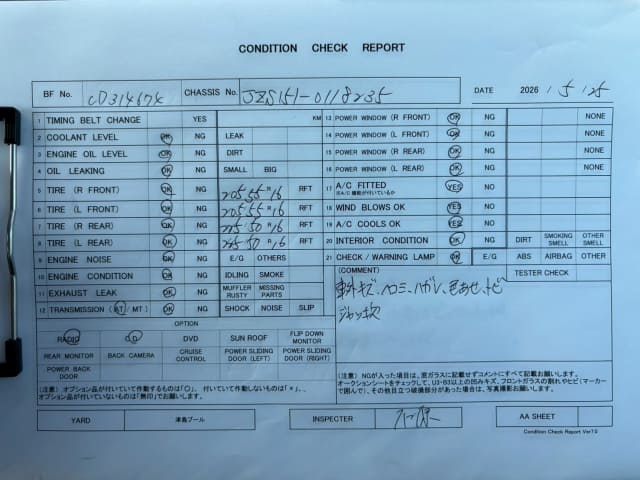 CONDITION CHECK REPORT
BF No. CD314674 CHASSIS No. JZS151-0118235 DATE 2026 1 5 1 25
1 TIMING BELT CHANGE YES KM
2 COOLANT LEVEL OK NG LEAK
3 ENGINE OIL LEVEL OK NG DIRT
4 OIL LEAKING OK NG SMALL BIG
5 TIRE (R FRONT) OK NG 205 55 R 16 RFT
6 TIRE (L FRONT) OK NG 205 55 R 16 RFT
7 TIRE (R REAR) OK NG 225 50 R 16 RFT
8 TIRE (L REAR) OK NG 225 50 R 16 RFT
9 ENGINE NOISE OK NG E/G OTHERS
10 ENGINE CONDITION OK NG IDLING SMOKE
11 EXHAUST LEAK OK NG MUFFLER RUSTY MISSING PARTS
12 TRANSMISSION (AT/ MT) OK NG SHOCK NOISE SLIP
OPTION
RADIO CD DVD SUN ROOF FLIP DOWN MONITOR
REAR MONITOR BACK CAMERA CRUISE CONTROL POWER SLIDING DOOR (LEFT) POWER SLIDING DOOR (RIGHT)
POWER BACK DOOR
(注意) オプション品が付いていて作動するものは「○」、付いていて作動しないものは「×」、
オプション品が付いていないものは「無印」でお願いします。
13 POWER WINDOW (R FRONT) OK NG NONE
14 POWER WINDOW (L FRONT) OK NG NONE
15 POWER WINDOW (R REAR) OK NG NONE
16 POWER WINDOW (L REAR) OK NG NONE
17 A/C FITTED YES NO
※A/C機能が付いているか
18 WIND BLOWS OK YES NO
19 A/C COOLS OK YES NO
20 INTERIOR CONDITION OK NG DIRT SMOKING SMELL OTHER SMELL
21 CHECK / WARNING LAMP OK E/G ABS AIRBAG OTHER
(COMMENT) TESTER CHECK
キズ、ヘコミ、ハガレ、色あせ、トビ
(注意) NGが入った項は、窓ガラスに記載せずコメントにすべて記載お願いします。
オークションシートをチェックして、U3・B3以上の凹みキズ、フロントガラスの割れやヒビ(マーカー
で囲んで)、その他目立つ破損部分があった場合は、写真撮影お願いします。
YARD 津島プール INSPECTER AA SHEET
Condition Check Report Ver7.0